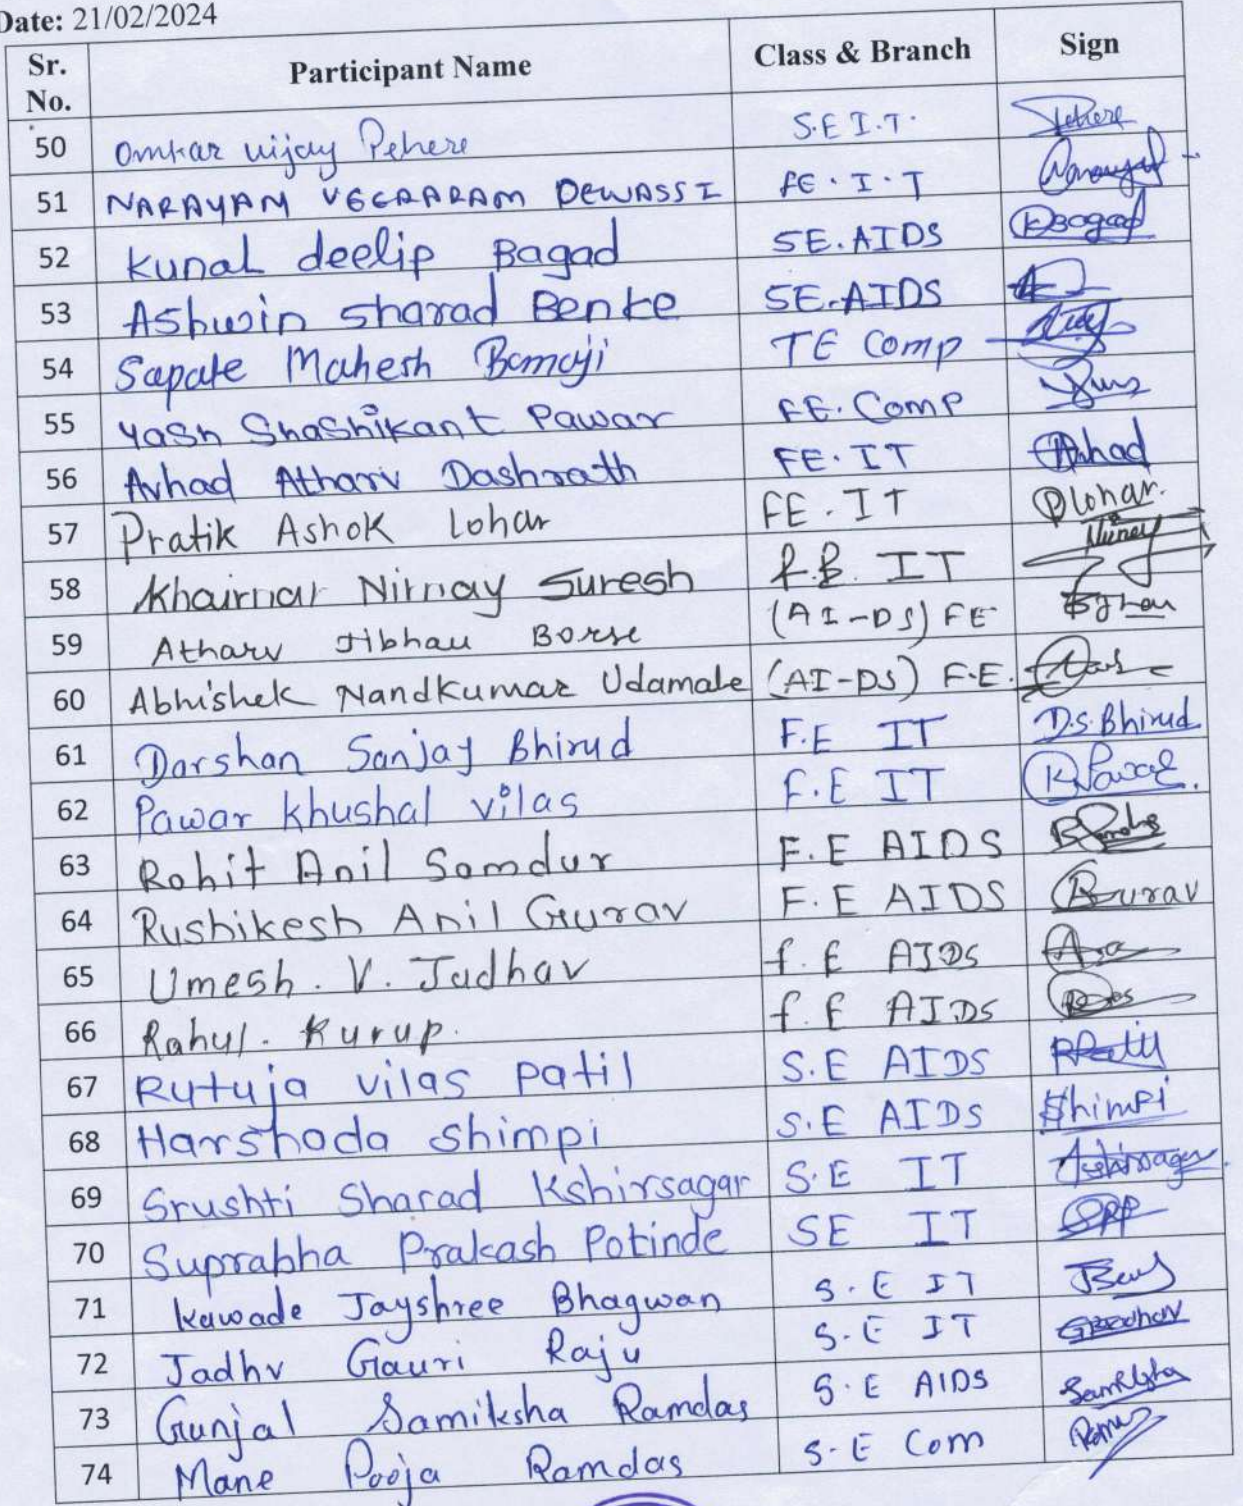 Date: 21/02/2024
Sr. No. Participant Name Class & Branch Sign
50 Omkar vijay Pehere S.E I.T. Pehere
51 NARAYAM VEERARAM DEWASSI FE.I.T
52 Kunal deelip Bagad SE.AIDS KBagad
53 Ashwin Sharad Benke SE.AIDS
54 Sapate Mahesh Bamaji TE Comp
55 Yash Shashikant Pawar FE.Comp
56 Avhad Atharv Dashrath FE.IT Avhad
57 Pratik Ashok Lohar FE.IT PLohar.
58 Khairnar Nirnay Suresh F.E. IT
59 Atharv Jibhau Borse (AI-DS) FE
60 Abhishek Nandkumar Udamale (AI-DS) F.E.
61 Darshan Sanjay Bhirud F.E IT D.S.Bhirud
62 Pawar Khushal Vilas F.E IT K.Pawar
63 Rohit Anil Somdur F.E AIDS
64 Rushikesh Anil Gurav F.E AIDS Gurav
65 Umesh. V. Jadhav f.E AIDS
66 Rahul. Kurup. f.E AIDS
67 Rutuja Vilas patil S.E AIDS RPatil
68 Harshada Shimpi S.E AIDS Shimpi
69 Srushti Sharad Kshirsagar S.E IT Kshirsagar
70 Suprabha Prakash Potinde SE IT SPP
71 Kawade Jayshree Bhagwan S.E IT
72 Jadhv Gauri Raju S.E IT
73 Gunjal Samiksha Ramdas S.E AIDS Samiksha
74 Mane Pooja Ramdas S.E Com